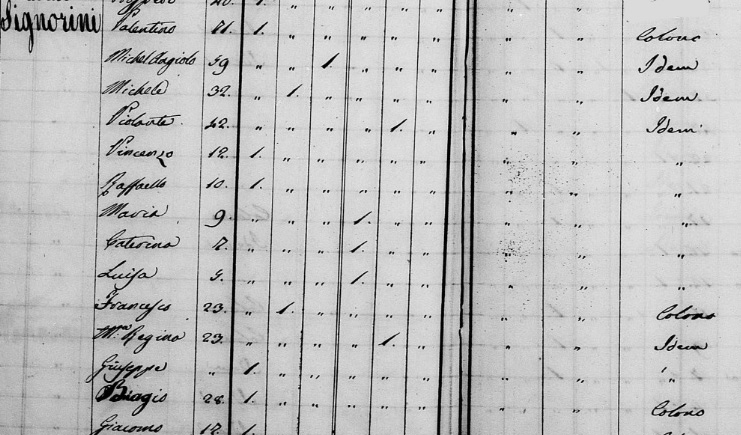 Signorini Valentino 11. 1. " " " " " " " Colono
Michel'Angiolo 59 " " 1. " " " " " Idem
Michele 32. " 1. " " " " " " Idem
Violante 42. " " " " 1. " " " Idem
Vincenzo 12. 1. " " " " " " " "
Raffaello 10. 1. " " " " " " " "
Maria 9. " " " 1. " " " " "
Caterina 7. " " " 1. " " " " "
Luisa 5. " " " 1. " " " " "
Francesco 23. " 1. " " " " " " Colono
Mª Regina 23. " " " " 1. " " " Idem
Giuseppe " 1. " " " " " " " "
Biagio 28. 1. " " " " " " " Colono
Giacomo 1.